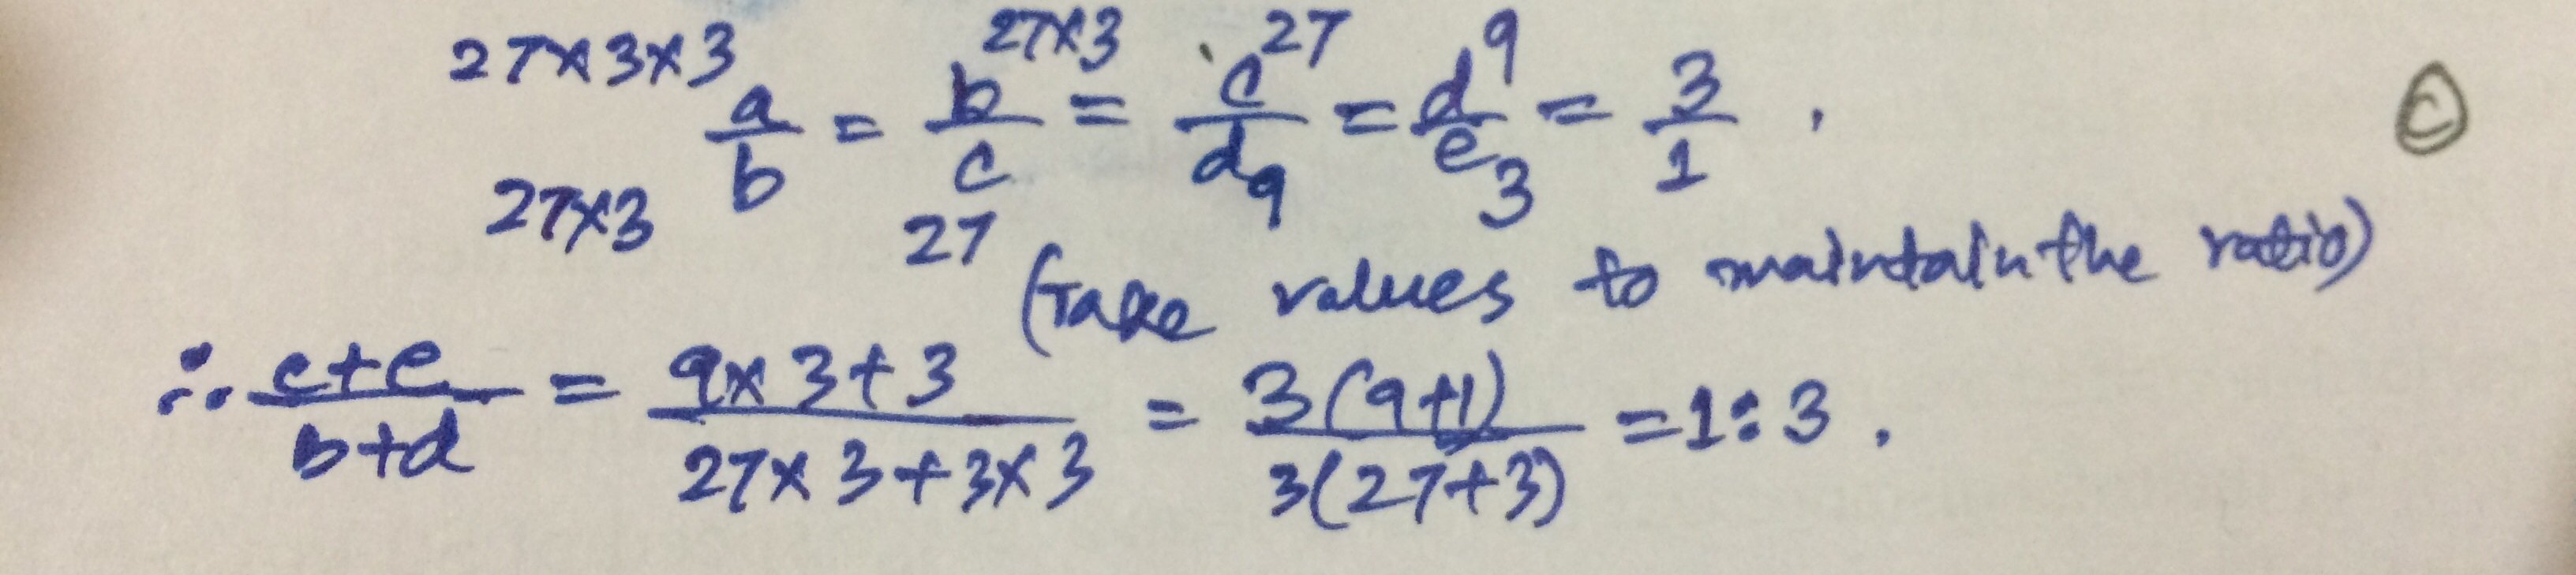 27×3×3 a/b = b/c 27×3 = c/d 27 = d/e 9 = 3/1 . C
27×3 27 9 3
(Take values to maintain the ratio)
∴ c+e/b+d = 9×3+3/27×3+3×3 = 3(9+1)/3(27+3) = 1:3 .